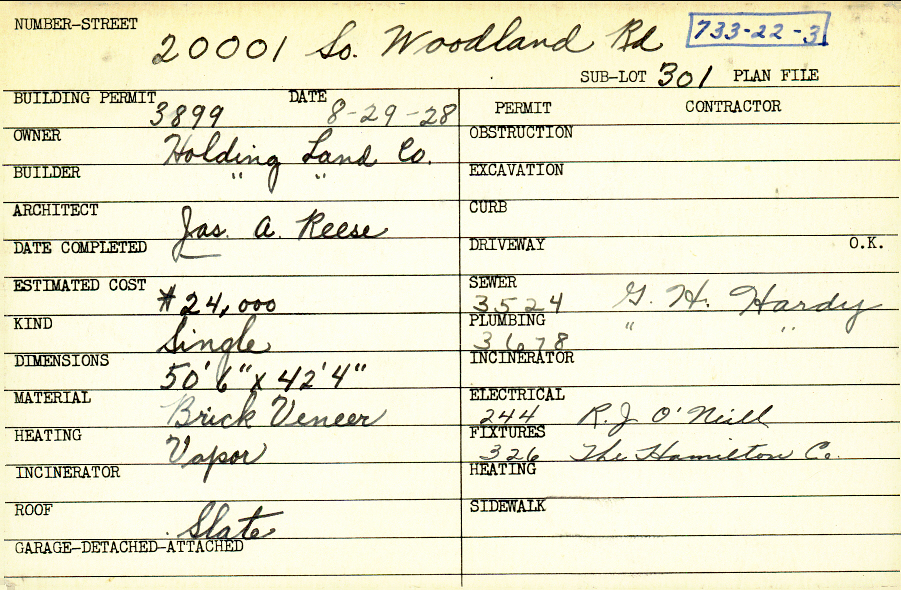 NUMBER-STREET 20001 So. Woodland Rd 733-22-3
SUB-LOT 301 PLAN FILE
BUILDING PERMIT 3899 DATE 8-29-28
OWNER Holding Land Co.
BUILDER " "
ARCHITECT Jas. A. Reese
DATE COMPLETED
ESTIMATED COST $24,000
KIND Single
DIMENSIONS 50'6" x 42'4"
MATERIAL Brick Veneer
HEATING Vapor
INCINERATOR
ROOF Slate
GARAGE-DETACHED-ATTACHED
PERMIT CONTRACTOR
OBSTRUCTION
EXCAVATION
CURB
DRIVEWAY O.K.
SEWER 3524 G. H. Hardy
PLUMBING 3678 " "
INCINERATOR
ELECTRICAL 244 R. J. O'Neill
FIXTURES 326 The Hamilton Co.
HEATING
SIDEWALK